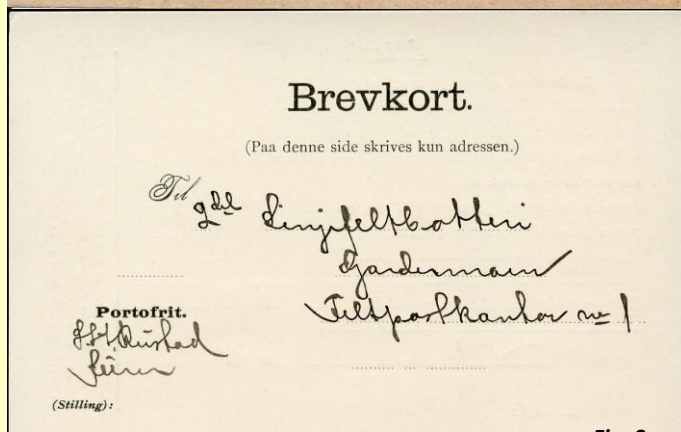 Brevkort.
(Paa denne side skrives kun adressen.)
Til 2det Linjefeltbatteri
Gardermoen
Feltpostkontor no 1
Portofrit.
Rustad
(Stilling):